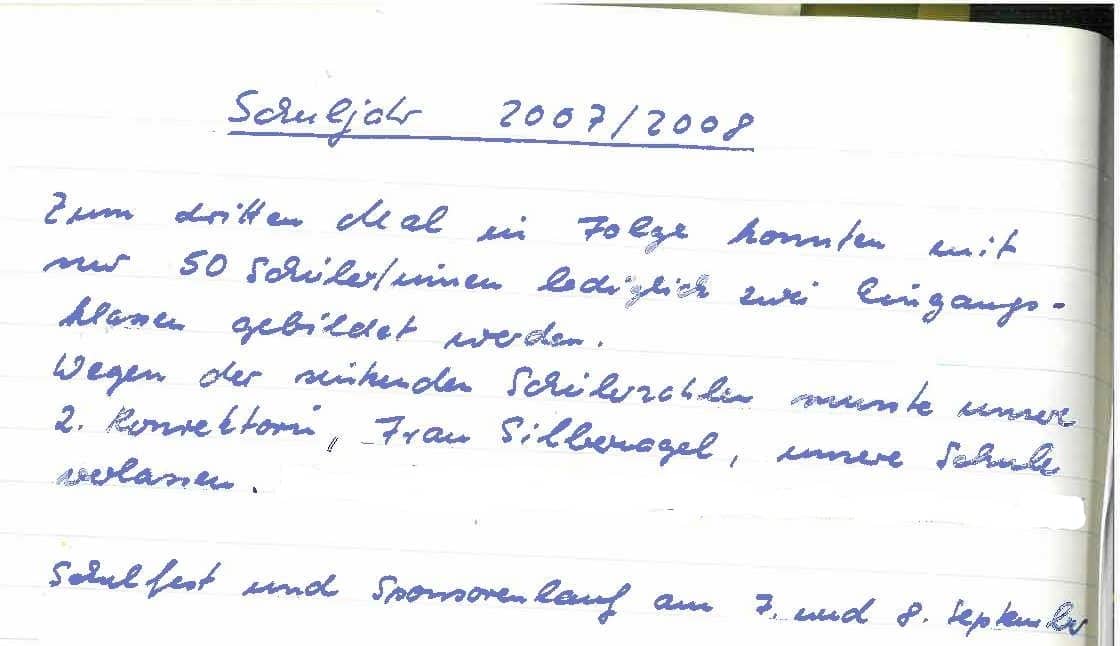 Schuljahr 2007/2008
Zum dritten Mal in Folge konnten mit
nur 50 Schüler/innen lediglich zwei Eingangs-
klassen gebildet werden.
Wegen der sinkenden Schülerzahlen musste unsere
2. Konrektorin, Frau Silbernagel, unsere Schule
verlassen.
Schulfest und Sponsorenlauf am 7. und 8. September